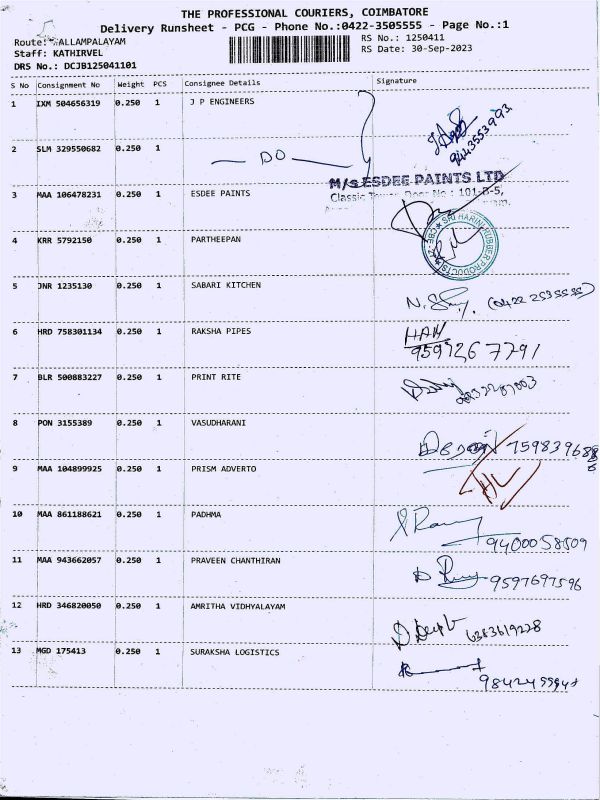 THE PROFESSIONAL COURIERS, COIMBATORE
Delivery Runsheet - PCG - Phone No.:0422-3505555 - Page No.:1
Route: GALLAMPALAYAM
RS No.: 1250411
Staff: KATHIRVEL
RS Date: 30-Sep-2023
DRS No.: DCJB125041101
S No Consignment No Weight PCS Consignee Details Signature
1 IXM 504656319 0.250 1 J P ENGINEERS
9443553993
2 SLM 329550682 0.250 1
DO
M/s ESDEE PAINTS LTD
Classic Tower, Door No : 101-B-5,
3 MAA 106478231 0.250 1 ESDEE PAINTS
4 KRR 5792150 0.250 1 PARTHEEPAN
SRI HARINI RUBBER PRODUCTS
5 JNR 1235130 0.250 1 SABARI KITCHEN
(0422 2535555)
6 HRD 758301134 0.250 1 RAKSHA PIPES
9597267791
7 BLR 500883227 0.250 1 PRINT RITE
8 PON 3155389 0.250 1 VASUDHARANI
9 MAA 104899925 0.250 1 PRISM ADVERTO
10 MAA 861188621 0.250 1 PADHMA
9400058509
11 MAA 943662057 0.250 1 PRAVEEN CHANTHIRAN
9597697596
12 HRD 346820050 0.250 1 AMRITHA VIDHYALAYAM
6383619228
13 MGD 175413 0.250 1 SURAKSHA LOGISTICS